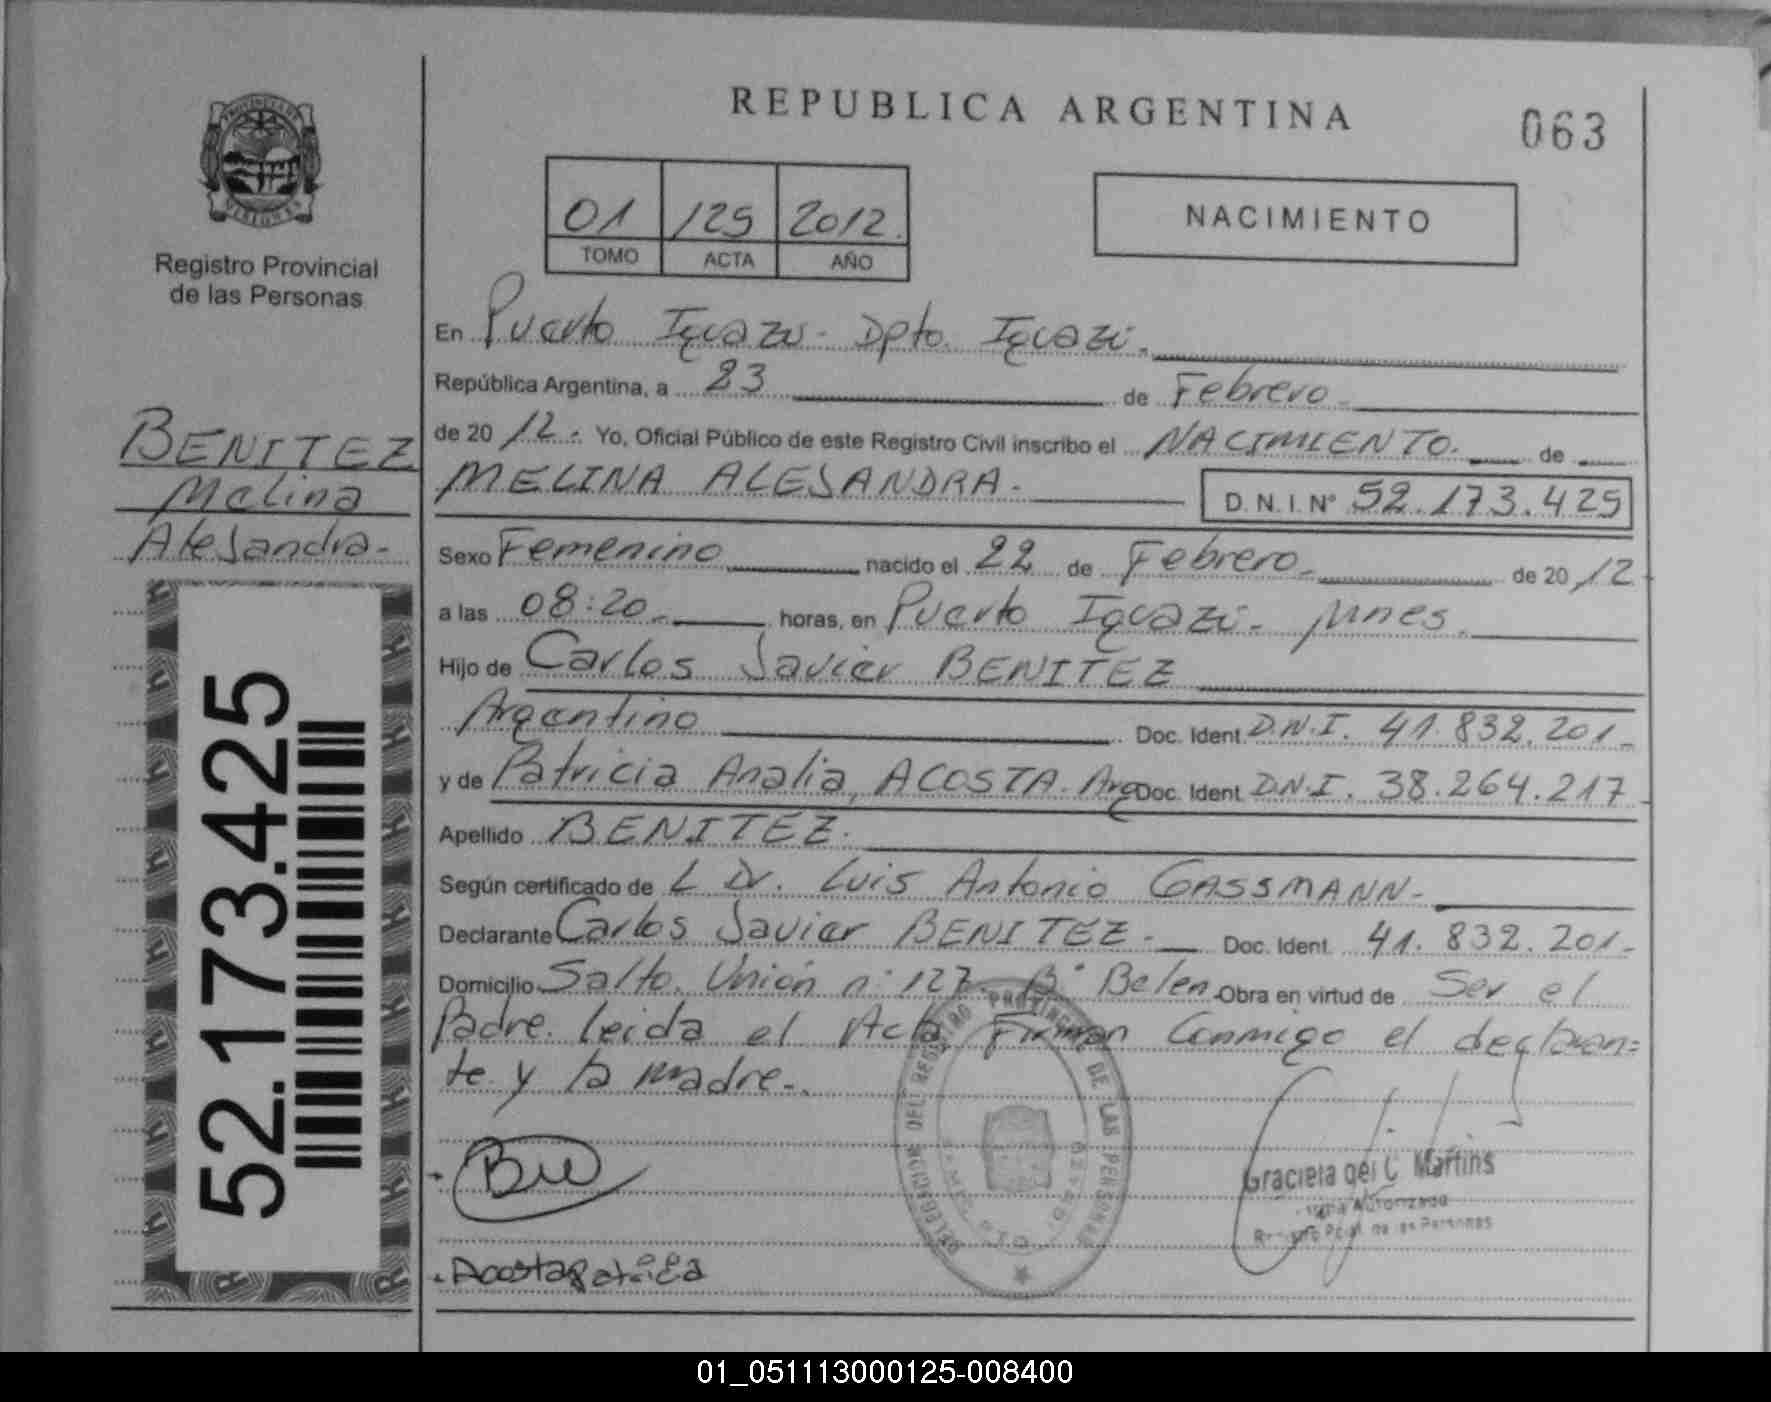 REPUBLICA ARGENTINA
063
PROVINCIA DE
MISIONES
Registro Provincial
de las Personas
01 125 2012.
TOMO ACTA AÑO
NACIMIENTO
BENITEZ
Melina
Alesandra-
52.173.425
En Puerto Iguazú- Dpto. Iguazú.
República Argentina, a 23 de Febrero-
de 20 12.- Yo, Oficial Público de este Registro Civil inscribo el NACIMIENTO. de
MELINA ALESANDRA- D. N. I. N° 52.173.425
Sexo Femenino nacido el 22 de Febrero- de 20 12
a las 08:20- horas, en Puerto Iguazú- Mnes.
Hijo de Carlos Javier BENITEZ
Argentino Doc. Ident. D.N.I. 41.832.201-
y de Patricia Analia, ACOSTA. Arg Doc. Ident. D.N.I. 38.264.217
Apellido BENITEZ.
Según certificado de L Dr. Luis Antonio GASSMANN-
Declarante Carlos Javier BENITEZ- Doc. Ident. 41.832.201-
Domicilio Salto Unión n° 127 B° Belen Obra en virtud de Ser el
Padre. leida el Acta Firman Conmigo el declaran=
te y la madre-.
DELEGACION DEL REGISTRO PROVINCIAL DE LAS PERSONAS
Graciela del C. Martins
Firma Autorizada
Registro Pcial. de las Personas
Acosta Patricia
01_051113000125-008400